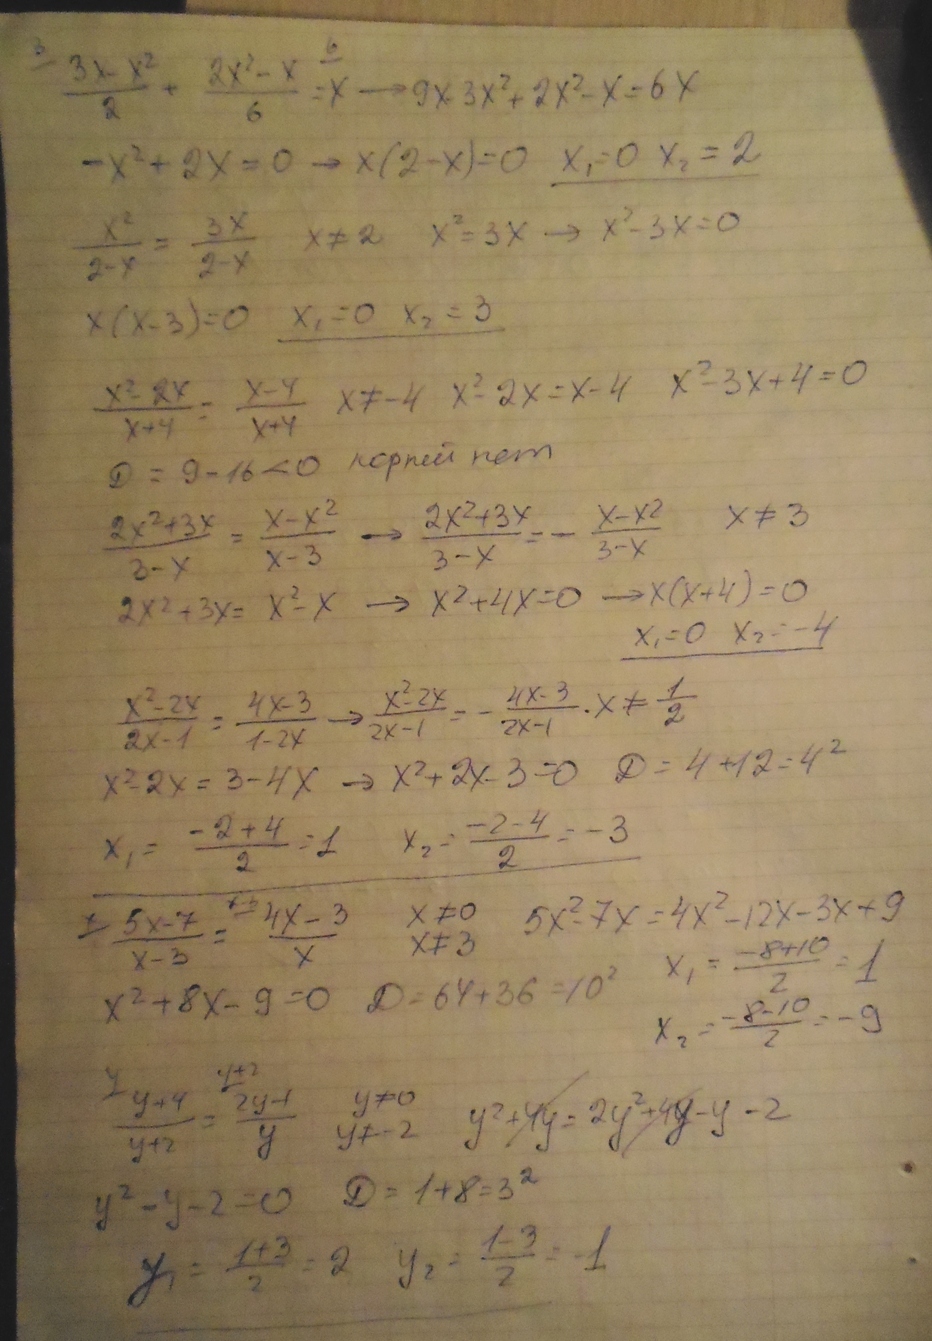 3 (3x-x²)/2 + (2x²-x)/6 = x 6 → 9x-3x²+2x²-x=6x
-x²+2x=0 → x(2-x)=0 x₁=0 x₂=2
x²/(2-x) = 3x/(2-x) x≠2 x²=3x → x²-3x=0
x(x-3)=0 x₁=0 x₂=3
(x²-2x)/(x+4) = (x-4)/(x+4) x≠-4 x²-2x=x-4 x²-3x+4=0
D=9-16<0 корней нет
(2x²+3x)/(3-x) = (x-x²)/(x-3) → (2x²+3x)/(3-x) = -(x-x²)/(3-x) x≠3
2x²+3x=x²-x → x²+4x=0 → x(x+4)=0
x₁=0 x₂=-4
(x²-2x)/(2x-1) = (4x-3)/(1-2x) → (x²-2x)/(2x-1) = -(4x-3)/(2x-1) · x≠1/2
x²-2x=3-4x → x²+2x-3=0 D=4+12=4²
x₁=(-2+4)/2=1 x₂=(-2-4)/2=-3
x (5x-7)/(x-3) = x-3 (4x-3)/x x≠0 x≠3 5x²-7x=4x²-12x-3x+9
x²+8x-9=0 D=64+36=10² x₁=(-8+10)/2=1
x₂=(-8-10)/2=-9
y (y+4)/(y+2) = y+2 (2y-1)/y y≠0 y≠-2 y²+4y=2y²+4y-y-2
y²-y-2=0 D=1+8=3²
y₁=(1+3)/2=2 y₂=(1-3)/2=-1